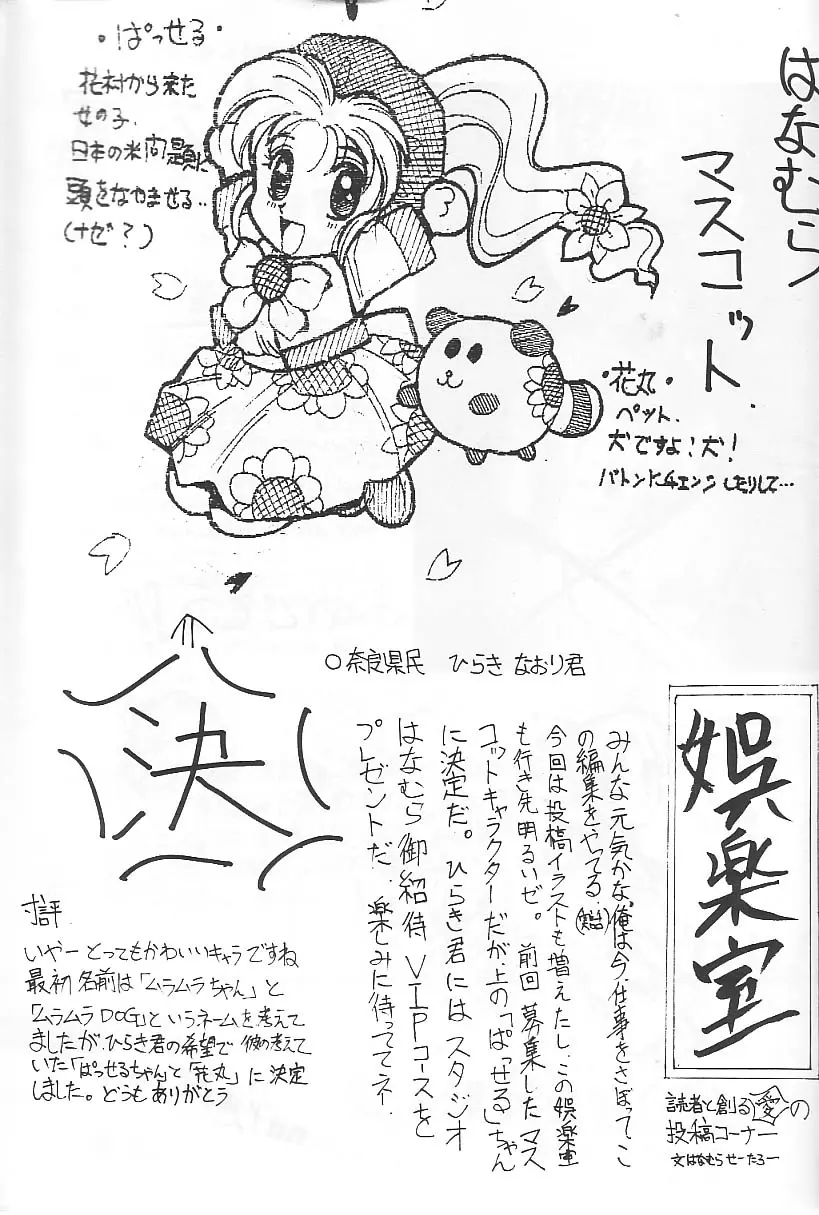 はなむら
マスコット
・ぱっせる・
花村から来た
女の子.
日本の米問題に
頭をなやませる..
(ナゼ?)
・花丸・
ペット.
犬ですよ!犬!
バトンにチェンジしたりして…
決
○奈良県民 ひらき なおり君
娯楽室
読者と創る愛の
投稿コーナー
文はなむらせーたろー
みんな元気かな。俺は今、仕事をさぼってこ
の編集をやってる
今回は投稿イラストも増えたし、この娯楽室
も行き先明るいゼ。前回募集したマス
コットキャラクターだが、上の「ぱっせる」ちゃん
に決定だ。ひらき君にはスタジオ
はなむら御紹待VIPコースを
プレゼントだ。楽しみに待っててネ.
寸評
いやーとってもかわいいキャラですね
最初名前は「ムラムラちゃん」と
「ムラムラDOG」というネームを考えて
ましたが、ひらき君の希望で彼の考えて
いた「ぱっせるちゃん」と「花丸」に決定
しました。どうもありがとう